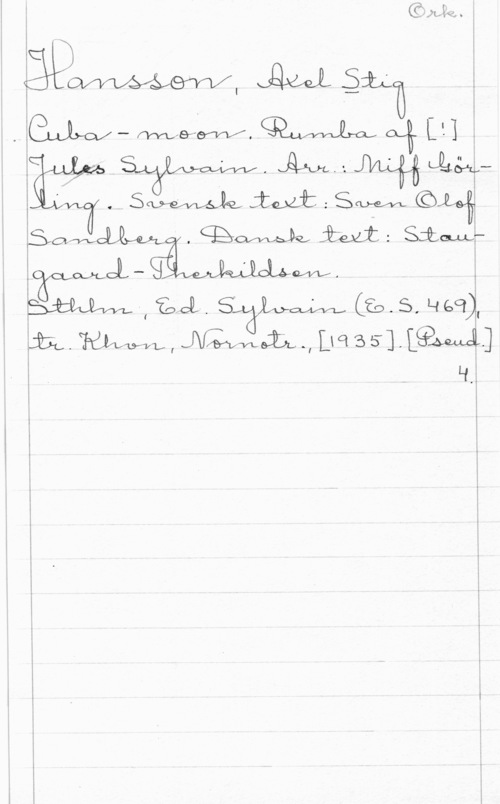 Ork.
Hansson, Axel Stig
Cuba-moon. Rumba af [!]
Jules Sylvain. Arr.: Miff Gör-
ling. Svensk text: Sven Olof
Sandberg. Dansk text: Stau-
gaard-Therkildsen.
Sthlm, Ed. Sylvain (E.S. 469),
tr. Khvn, Nornotr., [1935]. [Pseud.]
4.